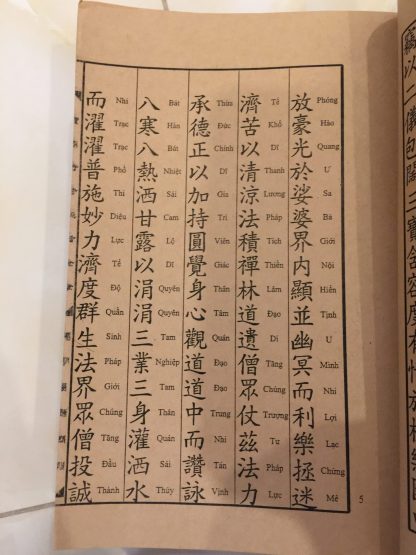 放豪光於娑婆界內顯並幽冥而利樂拯迷
Phóng Hào Quang Ư Sa Bà Giới Nội Hiển Tịnh U Minh Nhi Lợi Lạc Chửng Mê
濟苦以清涼法積禪林道遺僧眾仗茲法力
Tế Khổ Dĩ Thanh Lương Pháp Tích Thiền Lâm Đạo Di Tăng Chúng Trượng Tư Pháp Lực
承德正以加持圓覺身心觀道道中而讚詠
Thừa Đức Chính Dĩ Gia Trì Viên Giác Thân Tâm Quán Đạo Đạo Trung Nhi Tán Vịnh
八寒八熱洒甘露以涓涓三業三身灌洒水
Bát Hàn Bát Nhiệt Sái Cam Lộ Dĩ Quyên Quyên Tam Nghiệp Tam Thân Quán Sái Thủy
而濯濯普施妙力濟度群生法界眾僧投誠
Nhi Trạc Trạc Phổ Thi Diệu Lực Tế Độ Quần Sinh Pháp Giới Chúng Tăng Đầu Thành
5